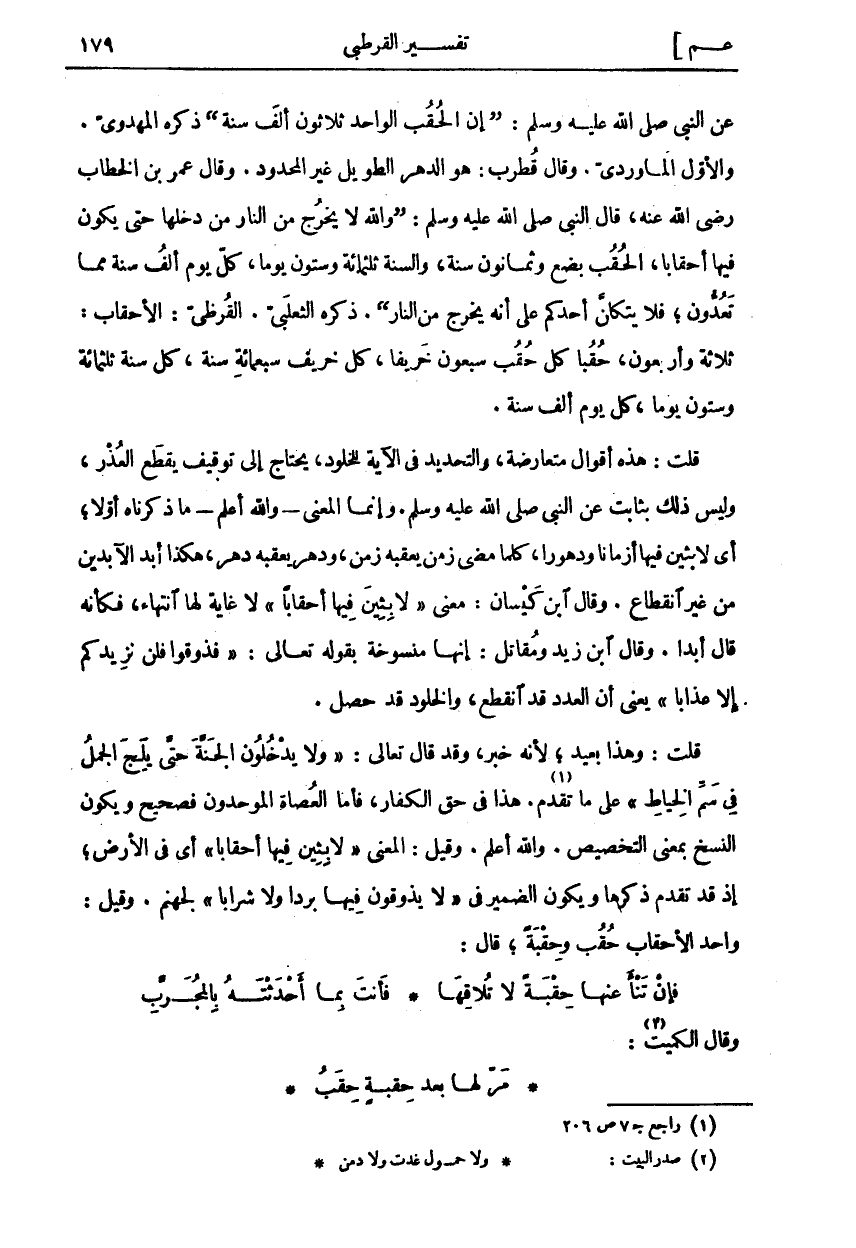 عـــم ] تفســـير القرطبى ١٧٩
عن النبى صلى الله عليــه وسلم : ”إن الحُقُب الواحد ثلاثون ألفَ سنة“ ذكره المهدوىّ .
والأوّل المـاوردىّ . وقال قُطرب: هو الدهر الطويل غير المحدود . وقال عمر بن الخطاب
رضى الله عنه، قال النبى صلى الله عليه وسلم : ”والله لا يخرُج من النار من دخلها حتى يكون
فيها أحقابا، الحُقُب بضع وثمـانون سنة، والسنة ثلثمائة وستون يوما، كلّ يوم ألفُ سنة ممـا
تَعُدُّون ؛ فلا يتكلنّ أحدكم على أنه يخرج من النار“ . ذكره الثعلَبىّ . القُرظىّ : الأحقاب :
ثلاثة وأربعون، حُقُبا كل حُقُب سبعون خَريفا ، كل خريف سبعمائةِ سنة ، كل سنة ثلثمائة
وستون يوما ، كل يوم ألف سنة .
قلت : هذه أقوال متعارضة، والتحديد فى الآية للخلود، يحتاج إلى توقيف يقطَع العُذْر ،
وليس ذلك بثابت عن النبى صلى الله عليه وسلم. وإنمـا المعنى — والله أعلم — ما ذكرناه أوّلا؛
أى لابثين فيها أزمانا ودهورا، كلما مضى زمن يعقبه زمن، ودهر يعقبه دهر، هكذا أبد الآبدين
من غير ٱنقطاع . وقال ٱبن كَيْسان : معنى « لابِثِينَ فِيها أحقاباً » لا غاية لها ٱنتهاء، فـكأنه
قال أبدا . وقال ٱبن زيد ومُقاتل : إنهـا منسوخة بقوله تعـالى : « فذوقوا فلن نزِيدكم
إلا عذابا » يعنى أن العدد قد ٱنقطع، والخلود قد حصل .
قلت : وهذا بعيد ؛ لأنه خبر، وقد قال تعالى : « ولا يدْخُلُون الجَنَّةَ حتَّى يلِجَ الجملُ
فِي سَمِّ الخِياطِ » على ما تقدم(١). هذا فى حق الكفار، فأما العُصاة الموحدون فصحيح ويكون
النسخ بمعنى التخصيص . والله أعلم . وقيل : المعنى « لابِثِين فِيها أحقابا» أى فى الأرض؛
إذ قد تقدم ذكرها ويكون الضمير فى « لا يذوقون فِيهـا بردا ولا شرابا » لجهنم . وقيل :
واحد الأحقاب حُقُب وحِقْبَةً ؛ قال :
فإنْ تَنْأَ عنهـا حِقْبَـةً لا تُلَاقِهَـا * فأنتَ بِمـا أَحْدَثْتَـــهُ بِالمُجَـــرَّبِ
وقال الكميت(٢) :
* مَرّ لهـا بعد حِقبـةٍ حِقَبُ *
(١) راجع جـ ٧ ص ٢٠٦
(٢) صدر البيت : * ولا حمـول غدت ولا دمن *